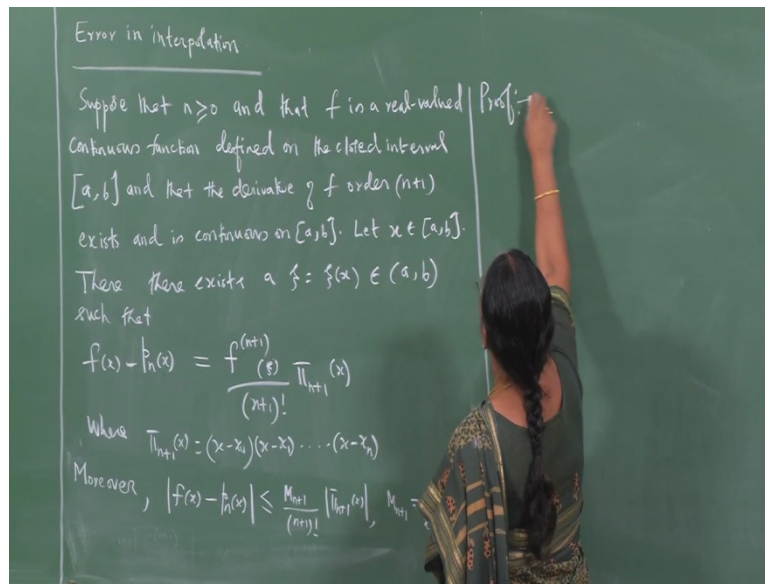 Error in interpolation
Suppose that n ≥ 0 and that f is a real-valued
continuous function defined on the closed interval
[a,b] and that the derivative of f order (n+1)
exists and is continuous on [a,b]. Let x ∈ [a,b].
There there exists a ξ = ξ(x) ∈ (a,b)
such that
f(x) - p_n(x) = f^(n+1)(ξ) / (n+1)! π_{n+1}(x)
Where π_{n+1}(x) = (x-x_0)(x-x_1) ..... (x-x_n)
Moreover, |f(x) - p_n(x)| ≤ M_{n+1} / (n+1)! |π_{n+1}(x)|, M_{n+1} =
Proof:-